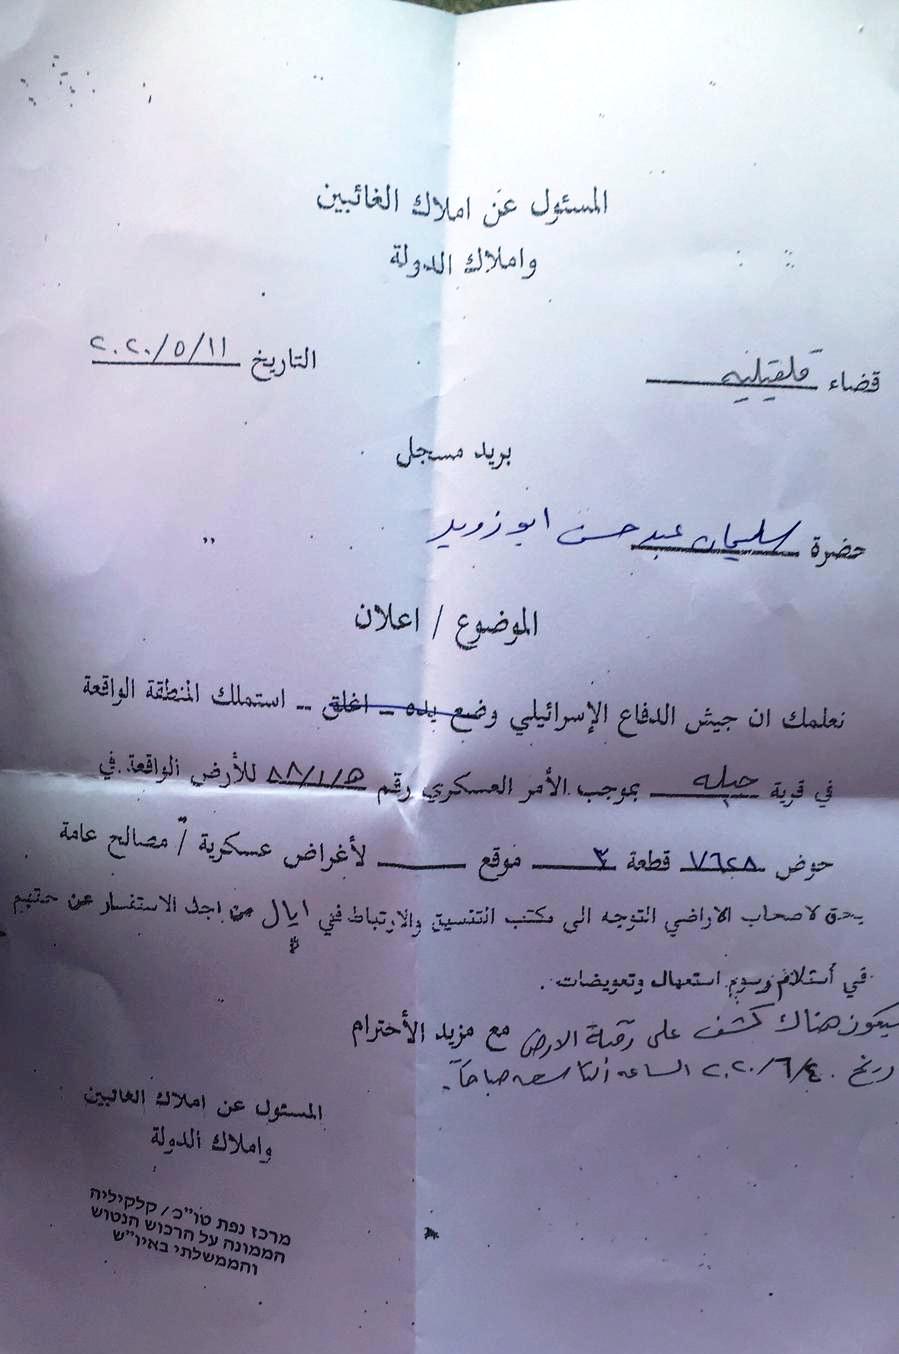 المسئول عن املاك الغائبين
واملاك الدولة
قضاء قلقيليه
التاريخ ٢٠٢٠/٥/١١
بريد مسجل
حضرة سليمان عبد حسن ابو زويد
الموضوع / اعلان
نعلمك ان جيش الدفاع الإسرائيلي وضع يده - اغلق -- استملك المنطقة الواقعة
في قرية جبله بموجب الأمر العسكري رقم ٥/١/٨٨ للأرض الواقعة في
حوض ٧٦٢٨ قطعة ٣ موقع لأغراض عسكرية / مصالح عامة
يحق لاصحاب الاراضي التوجه الى مكتب التنسيق والارتباط في ايال من اجل الاستفسار عن حقهم
في أستلام رسوم استعمال وتعويضات .
سيكون هناك كشف على رقبة الارض مع مزيد الأحترام
٢٠٢٠/٦/٤ الساعه التاسعه صباحاً .
المسئول عن املاك الغائبين
واملاك الدولة
מרכז נפת טו"כ/קלקיליה
הממונה על הרכוש הנטוש
והממשלתי באיו"ש